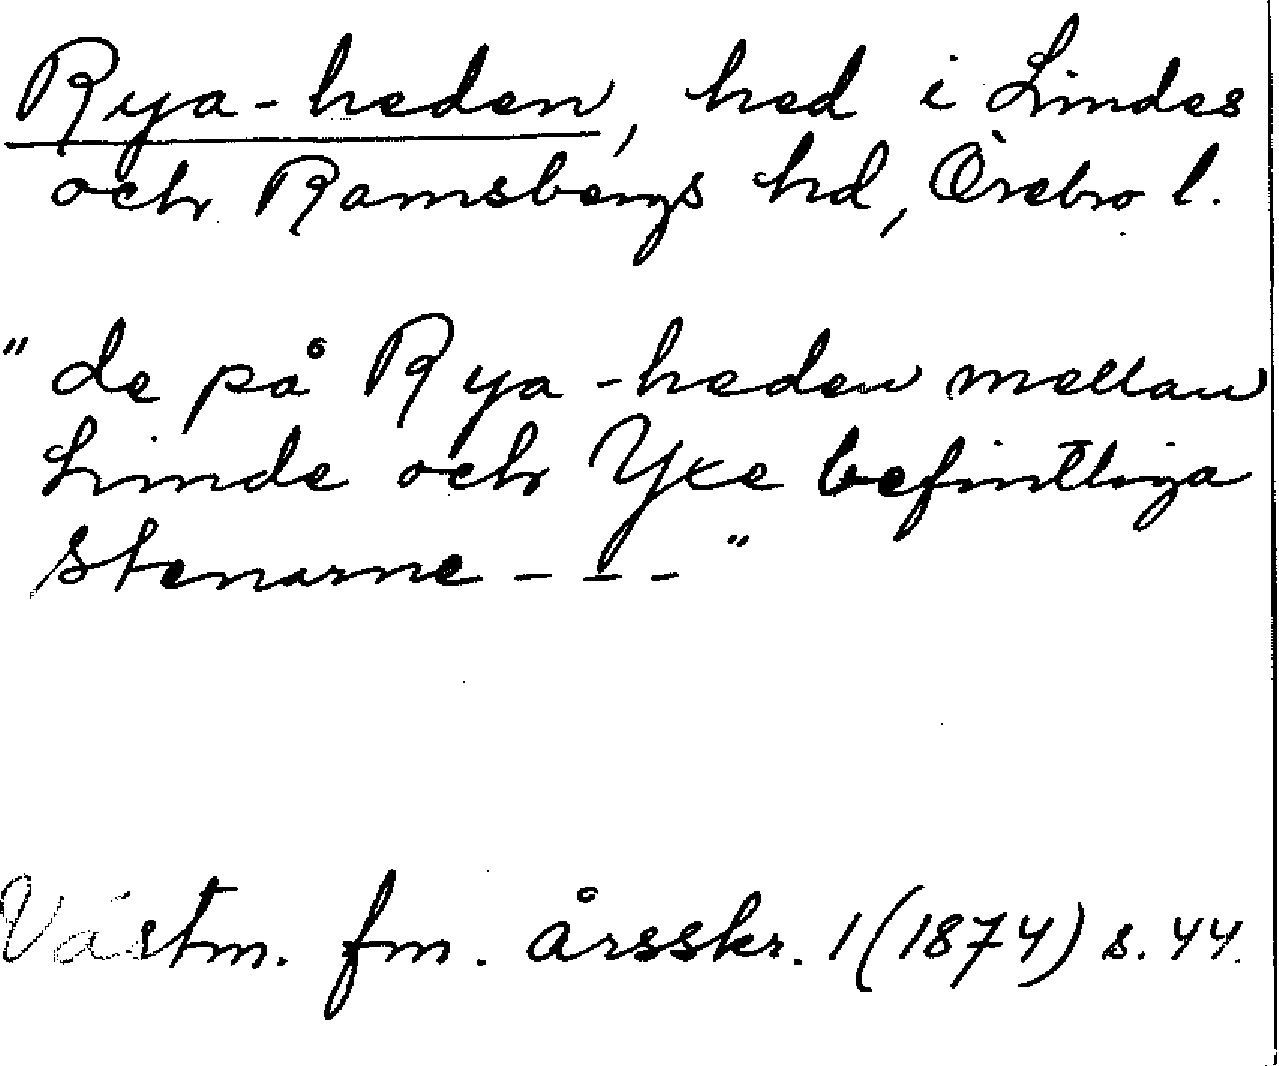 Rya-heden, hed i Lindes
och Ramsbergs hd, Örebro l.
"de på Rya-heden mellan
Linde och Yxe befintliga
stenarne - - - "
Västm. fm. årsskr. 1 (1874) s. 44.